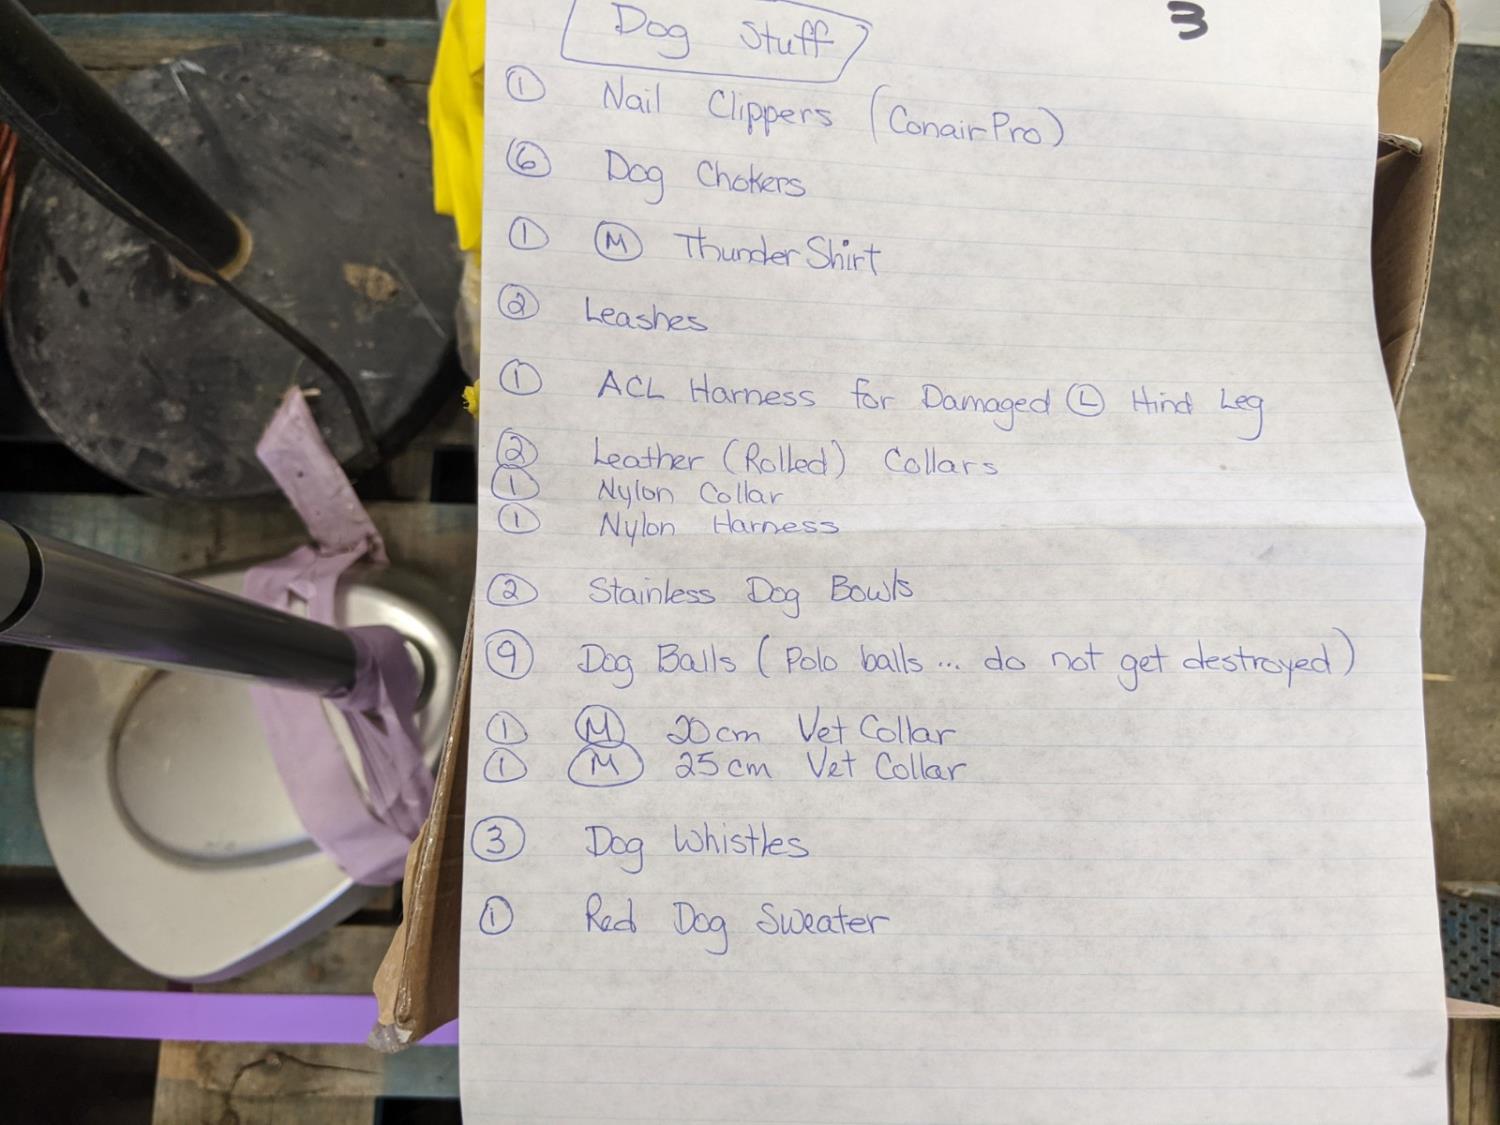 Dog Stuff 3
① Nail Clippers (Conair Pro)
⑥ Dog Chokers
① Ⓜ ThunderShirt
② Leashes
① ACL Harness for Damaged Ⓛ Hind Leg
② Leather (Rolled) Collars
① Nylon Collar
① Nylon Harness
② Stainless Dog Bowls
⑨ Dog Balls (Polo balls... do not get destroyed)
① Ⓜ 20cm Vet Collar
① Ⓜ 25cm Vet Collar
③ Dog Whistles
① Red Dog Sweater